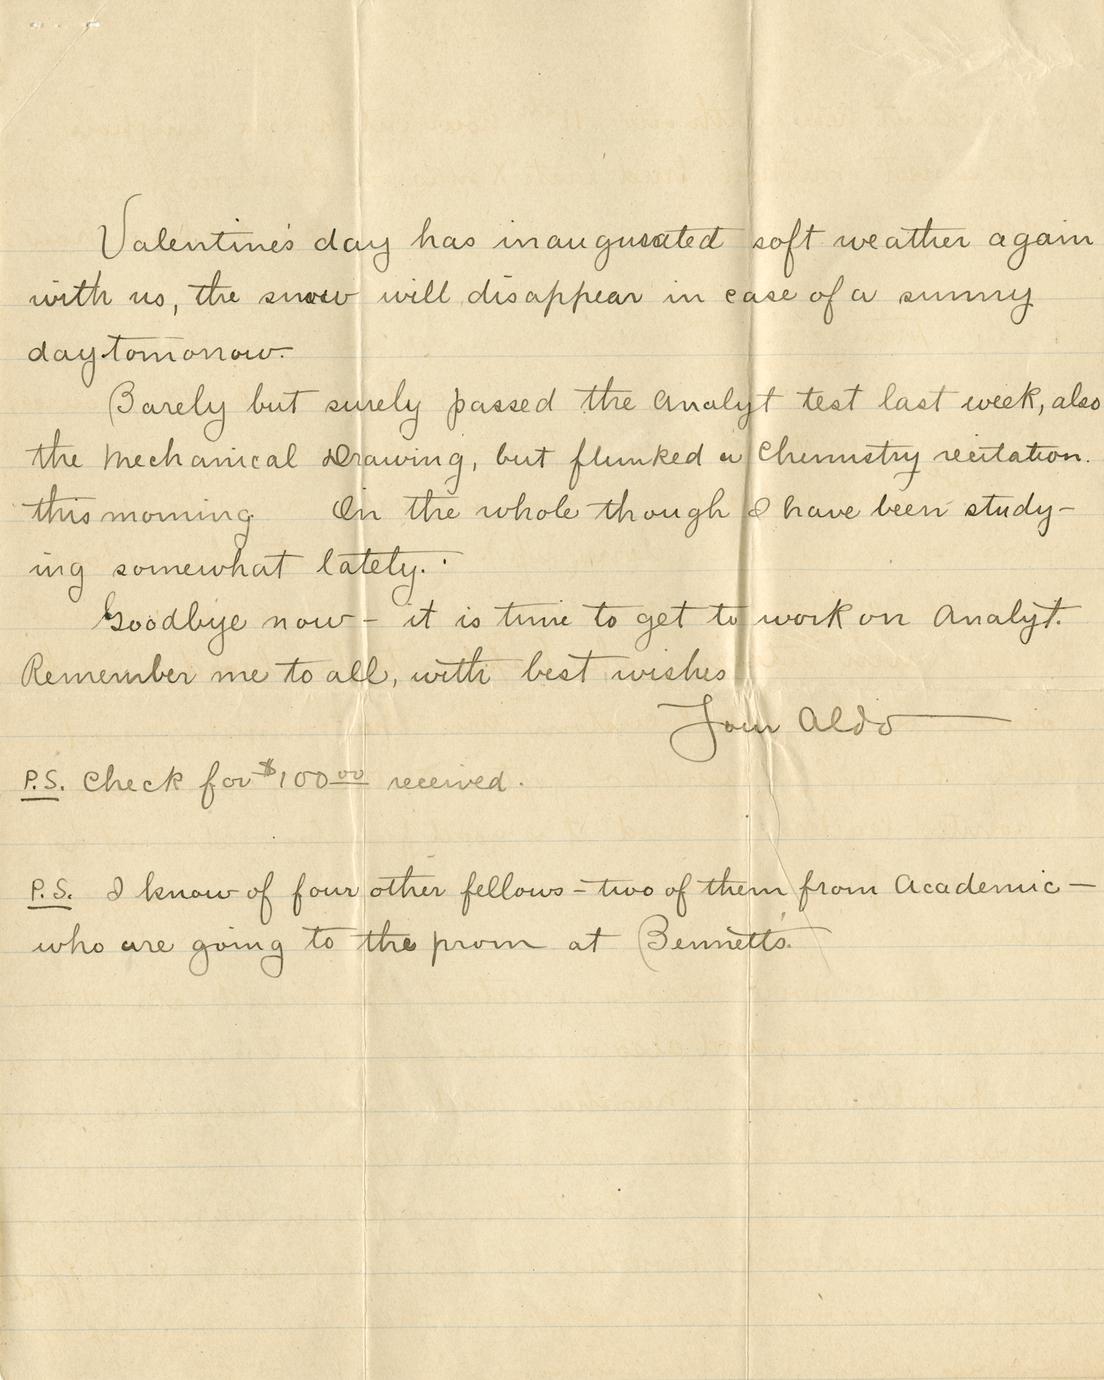 Valentine's day has inaugurated soft weather again
with us, the snow will disappear in case of a sunny
day tomorrow.
Barely but surely passed the Analyt test last week, also
the Mechanical Drawing, but flunked a Chemistry recitation.
this morning On the whole though I have been study-
ing somewhat lately.
Goodbye now - it is time to get to work on Analyt.
Remember me to all, with best wishes
Your Aldo
P.S. Check for $100.00 received.
P.S. I know of four other fellows - two of them from Academic -
who are going to the prom at Bennett's.